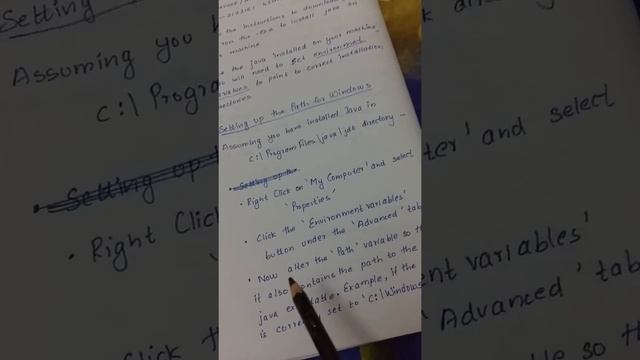 the instructions to download
run the .exe to install java on
machine
the java installed on your machine
you will need to set environment
variables to point to correct installation
directories
Setting up the Path for Windows
Assuming you have installed Java in
C:\ Program Files\java\jdk directory –
Setting up the
• Right Click on 'My Computer' and select
'Properties'
• Click the 'Environment variables'
button under the 'Advanced' tab
• Now alter the 'Path' variable so th
it also contains the path to the
java executable. Example, if the
is set to 'C:\Windows